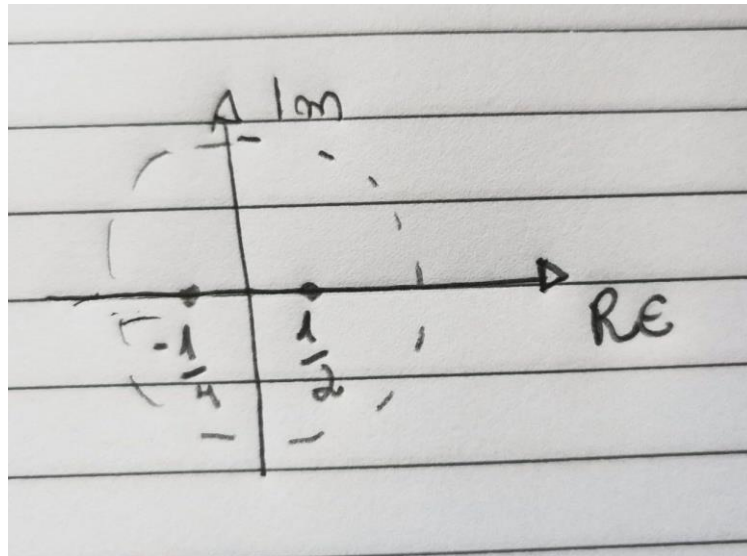 Im
RE
-1/4
1/2